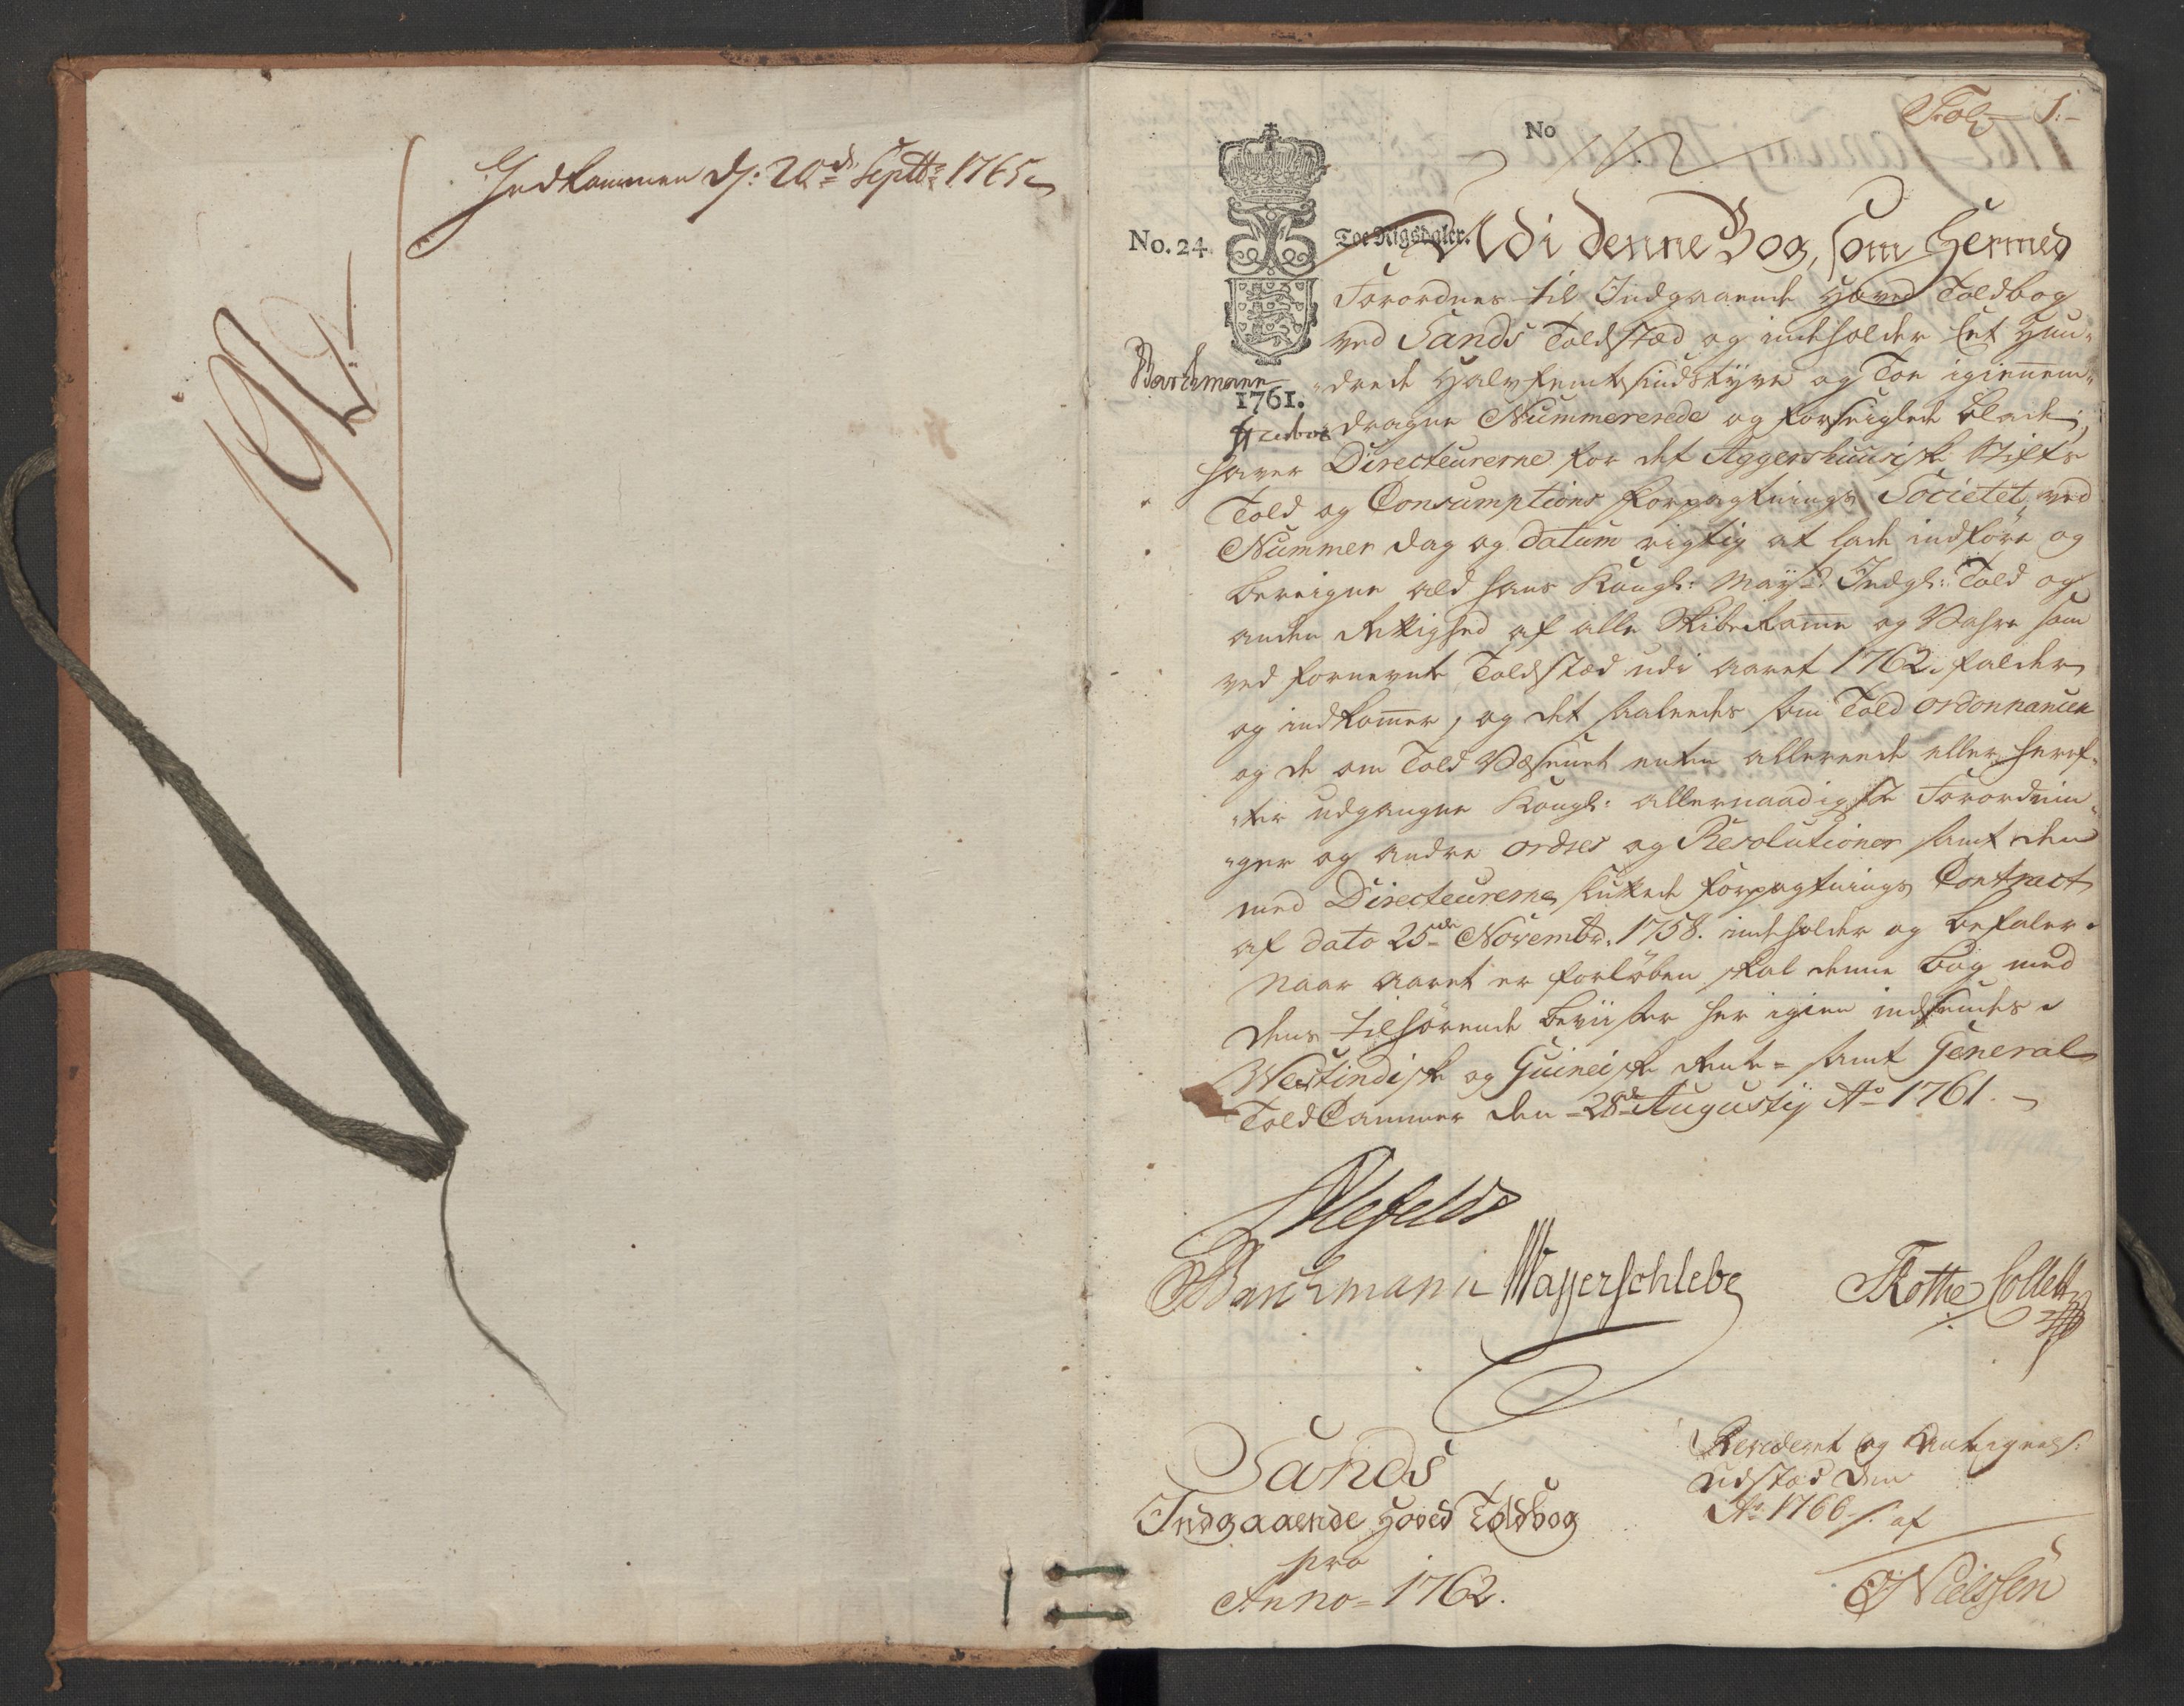 Indkommen d: 20de Septbr 1765
192
Fol: 1:
No
No. 24
Toe Rigsdaler.
Udi denne Bog, som Hermed
Forordnes til Indgaaende Hoved Toldbog
ved Sands Toldstæd og indeholder Et Hun-
Barchmann
1761.
drede Halvfemtesindstyve og Toe igiennem-
dragne Nummererede og forseiglede blade,
haver Directeurerne for det Aggershuusiske Stifts
Told og Consumptions Forpagtnings Societet, ved
Nummer dag og datum rigtig at lade indføre og
beregne ald hans Kongl: Mayts: Indgl: Told og
anden Rettighed af alle Skiberomme og Vahre som
ved fornevnte Toldstæd udi aaret 1762 falder
og indkommer, og det saaledes som Told ordonnancen
og de om Told Væsenet enten allerede eller heref-
ter udgangne Kongl: allernaadigste Forordnin-
ger og andre ordres og Resolutioner samt den
med Directeurerne sluttede Forpagtnings Contract
af dato 25de Novembr. 1758. indeholder og befaler.
Naar Aaret er forløben skal denne bog med
dens tilhørende beviiser her igien indsendes.
Westindiske og Guineiske Rente- samt General
ToldCammer den 28de Augustij Ao 1761.
Ahlefeldt
Barchmann Wasserschlebe
Rothe Collett
Sands
Indgaaende Hoved Toldbog
pro
Anno 1762.
Revideret og Antegnels:
udstæd den
Ao 1766 af
Nielssen